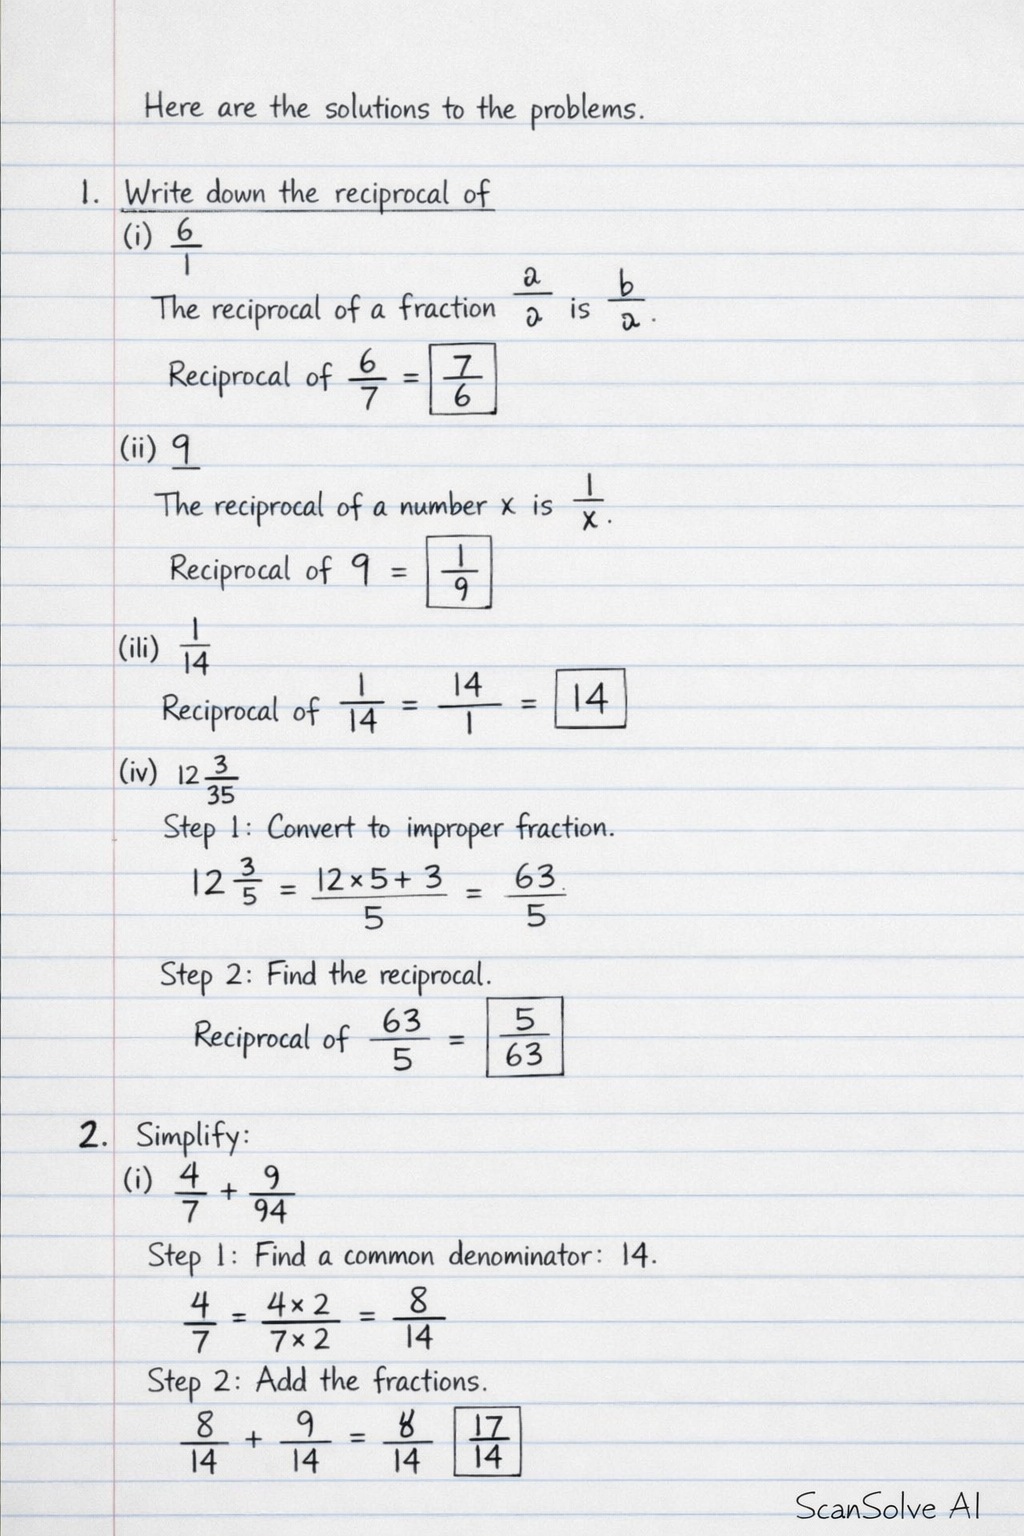 Here are the solutions to the problems.
1. Write down the reciprocal of
(i) 6/1
The reciprocal of a fraction a/a is b/a.
Reciprocal of 6/7 = 7/6
(ii) 9
The reciprocal of a number x is 1/x.
Reciprocal of 9 = 1/9
(ili) 1/14
Reciprocal of 1/14 = 14/1 = 14
(iv) 12 3/35
Step 1: Convert to improper fraction.
12 3/5 = 12×5+3/5 = 63/5
Step 2: Find the reciprocal.
Reciprocal of 63/5 = 5/63
2. Simplify:
(i) 4/7 + 9/94
Step 1: Find a common denominator: 14.
4/7 = 4×2/7×2 = 8/14
Step 2: Add the fractions.
8/14 + 9/14 = 8/14 17/14
ScanSolve AI